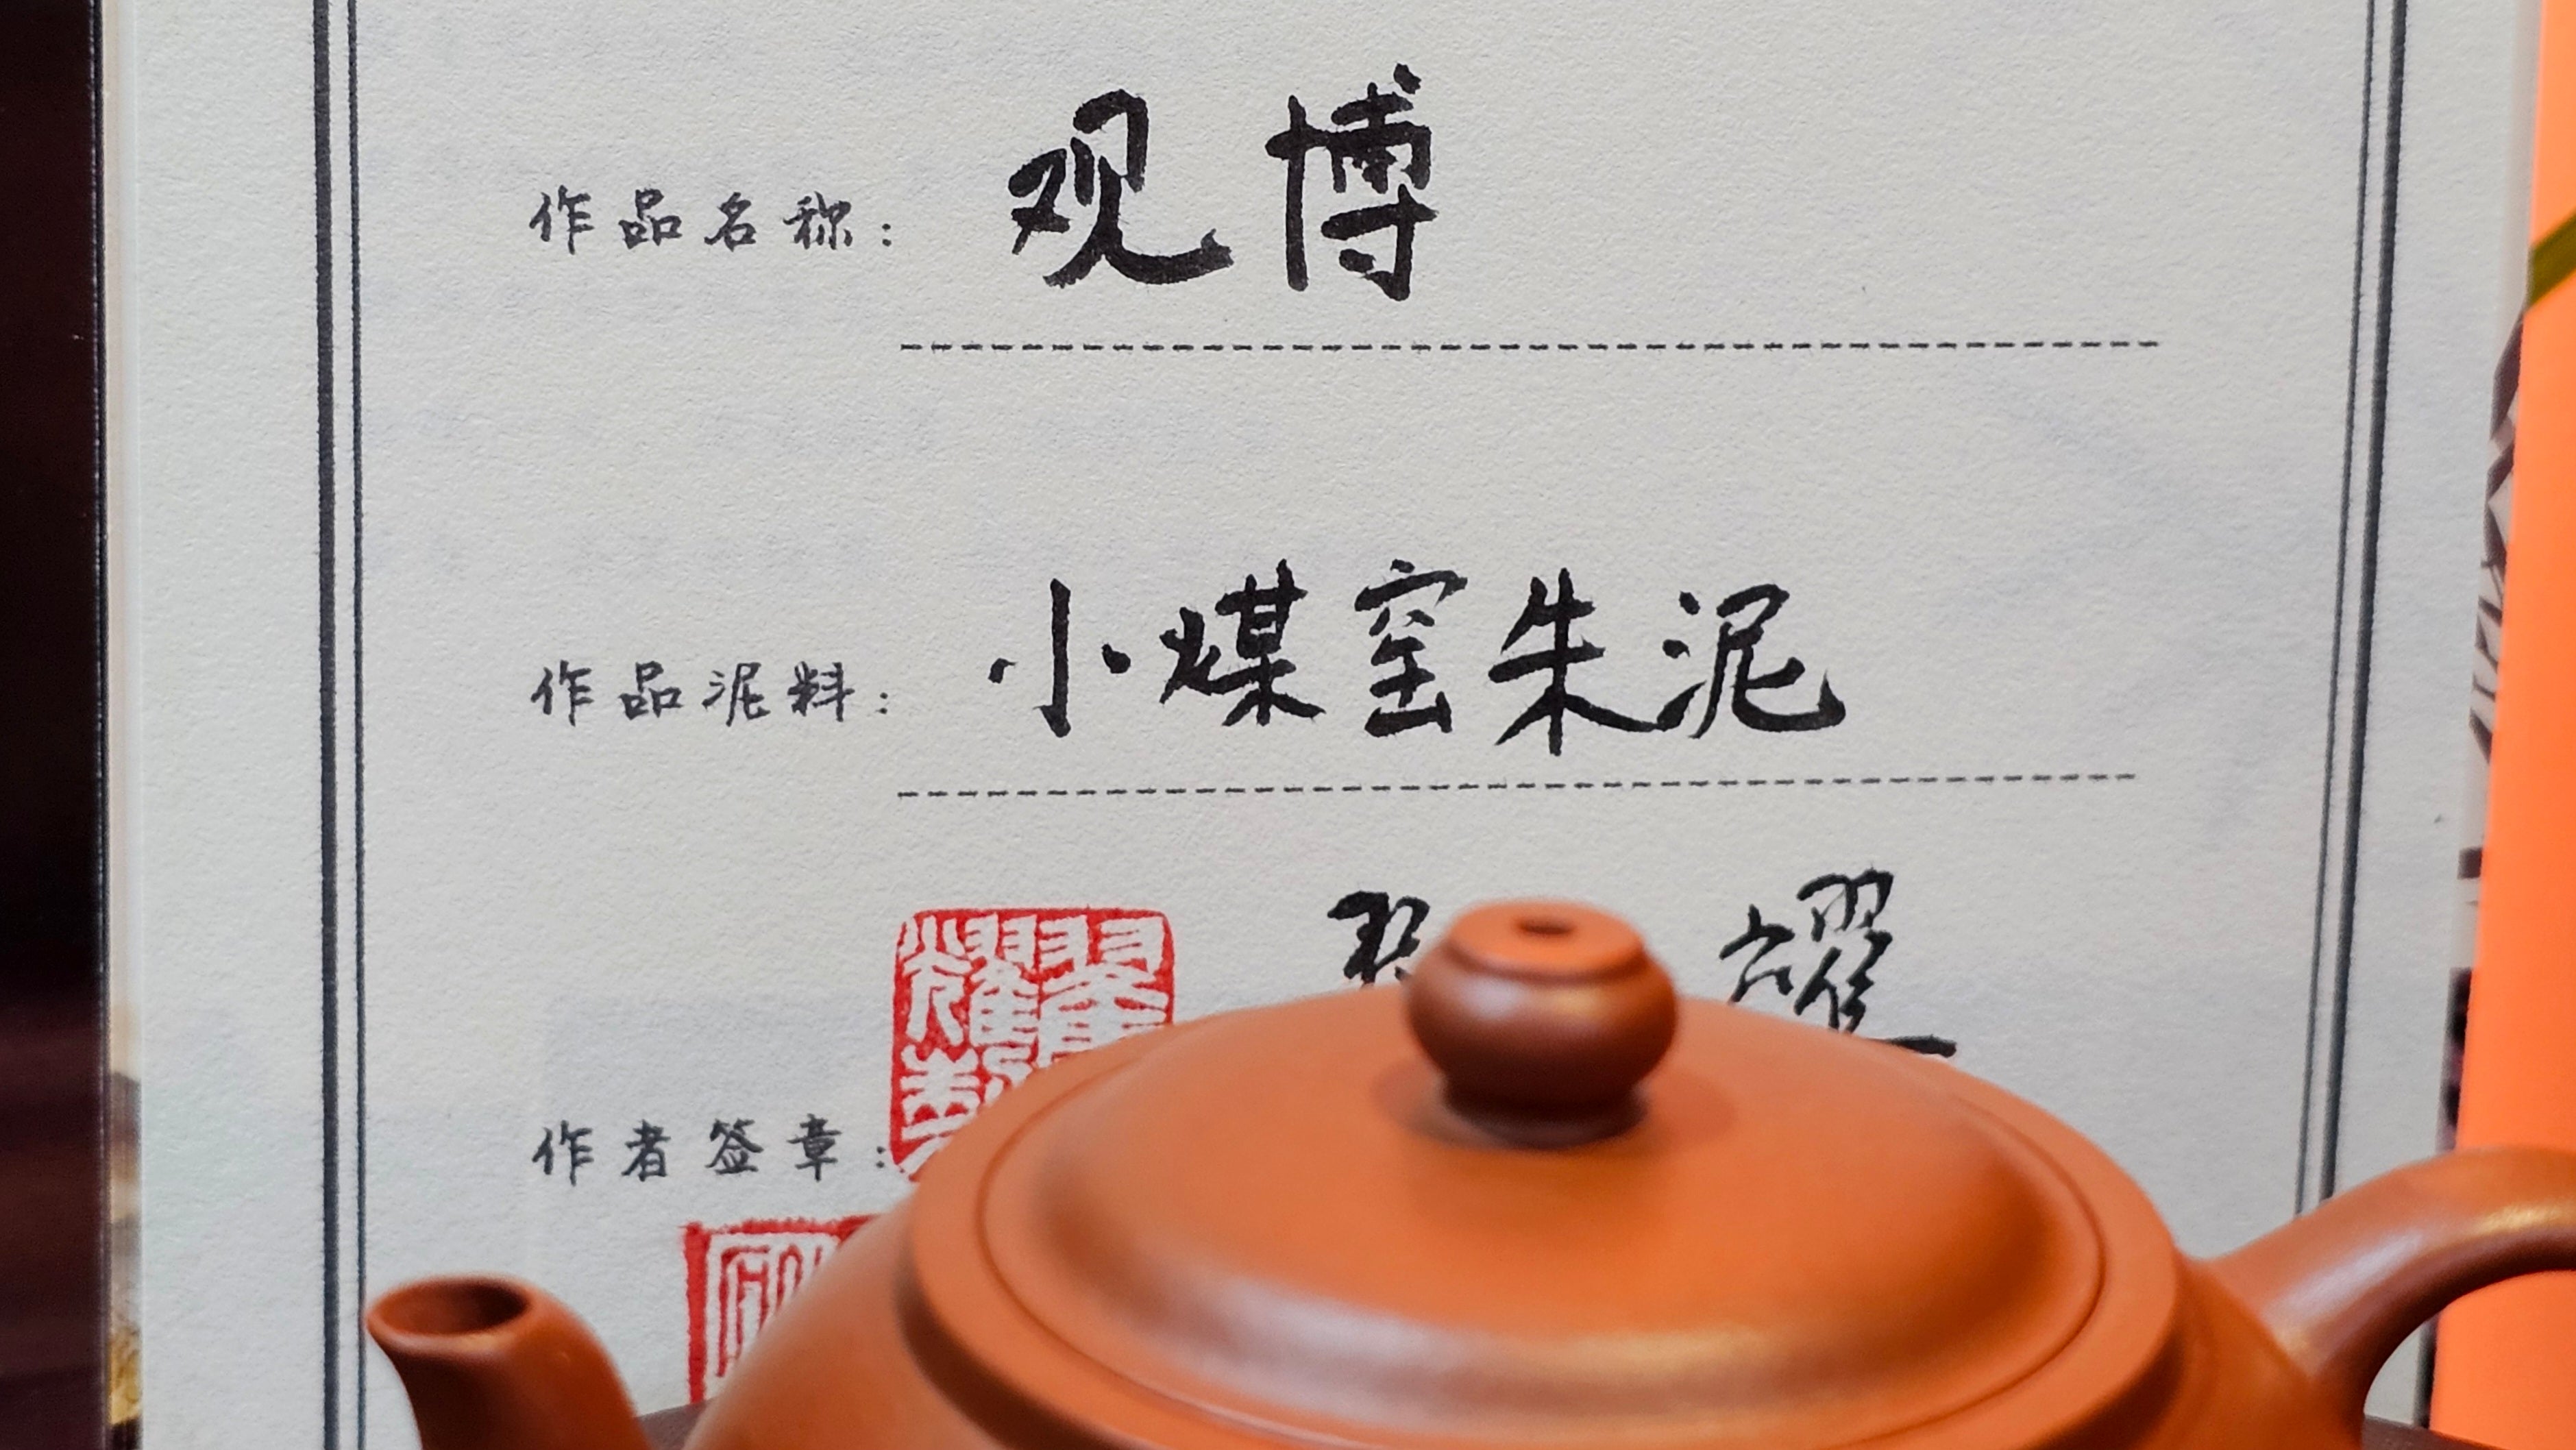 作品名称：观博
作品泥料：小煤窑朱泥
作者签章：